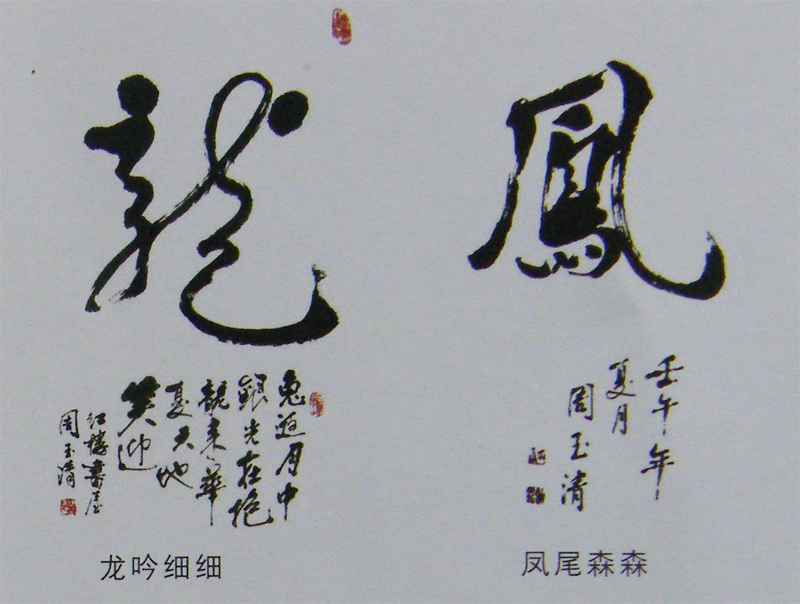 龍
兔月中
銀光在
龍来華
夏天地
笑迎
紅樓書屋
周玉清
龙吟细细
鳳
壬午年
夏月
周玉清
凤尾森森